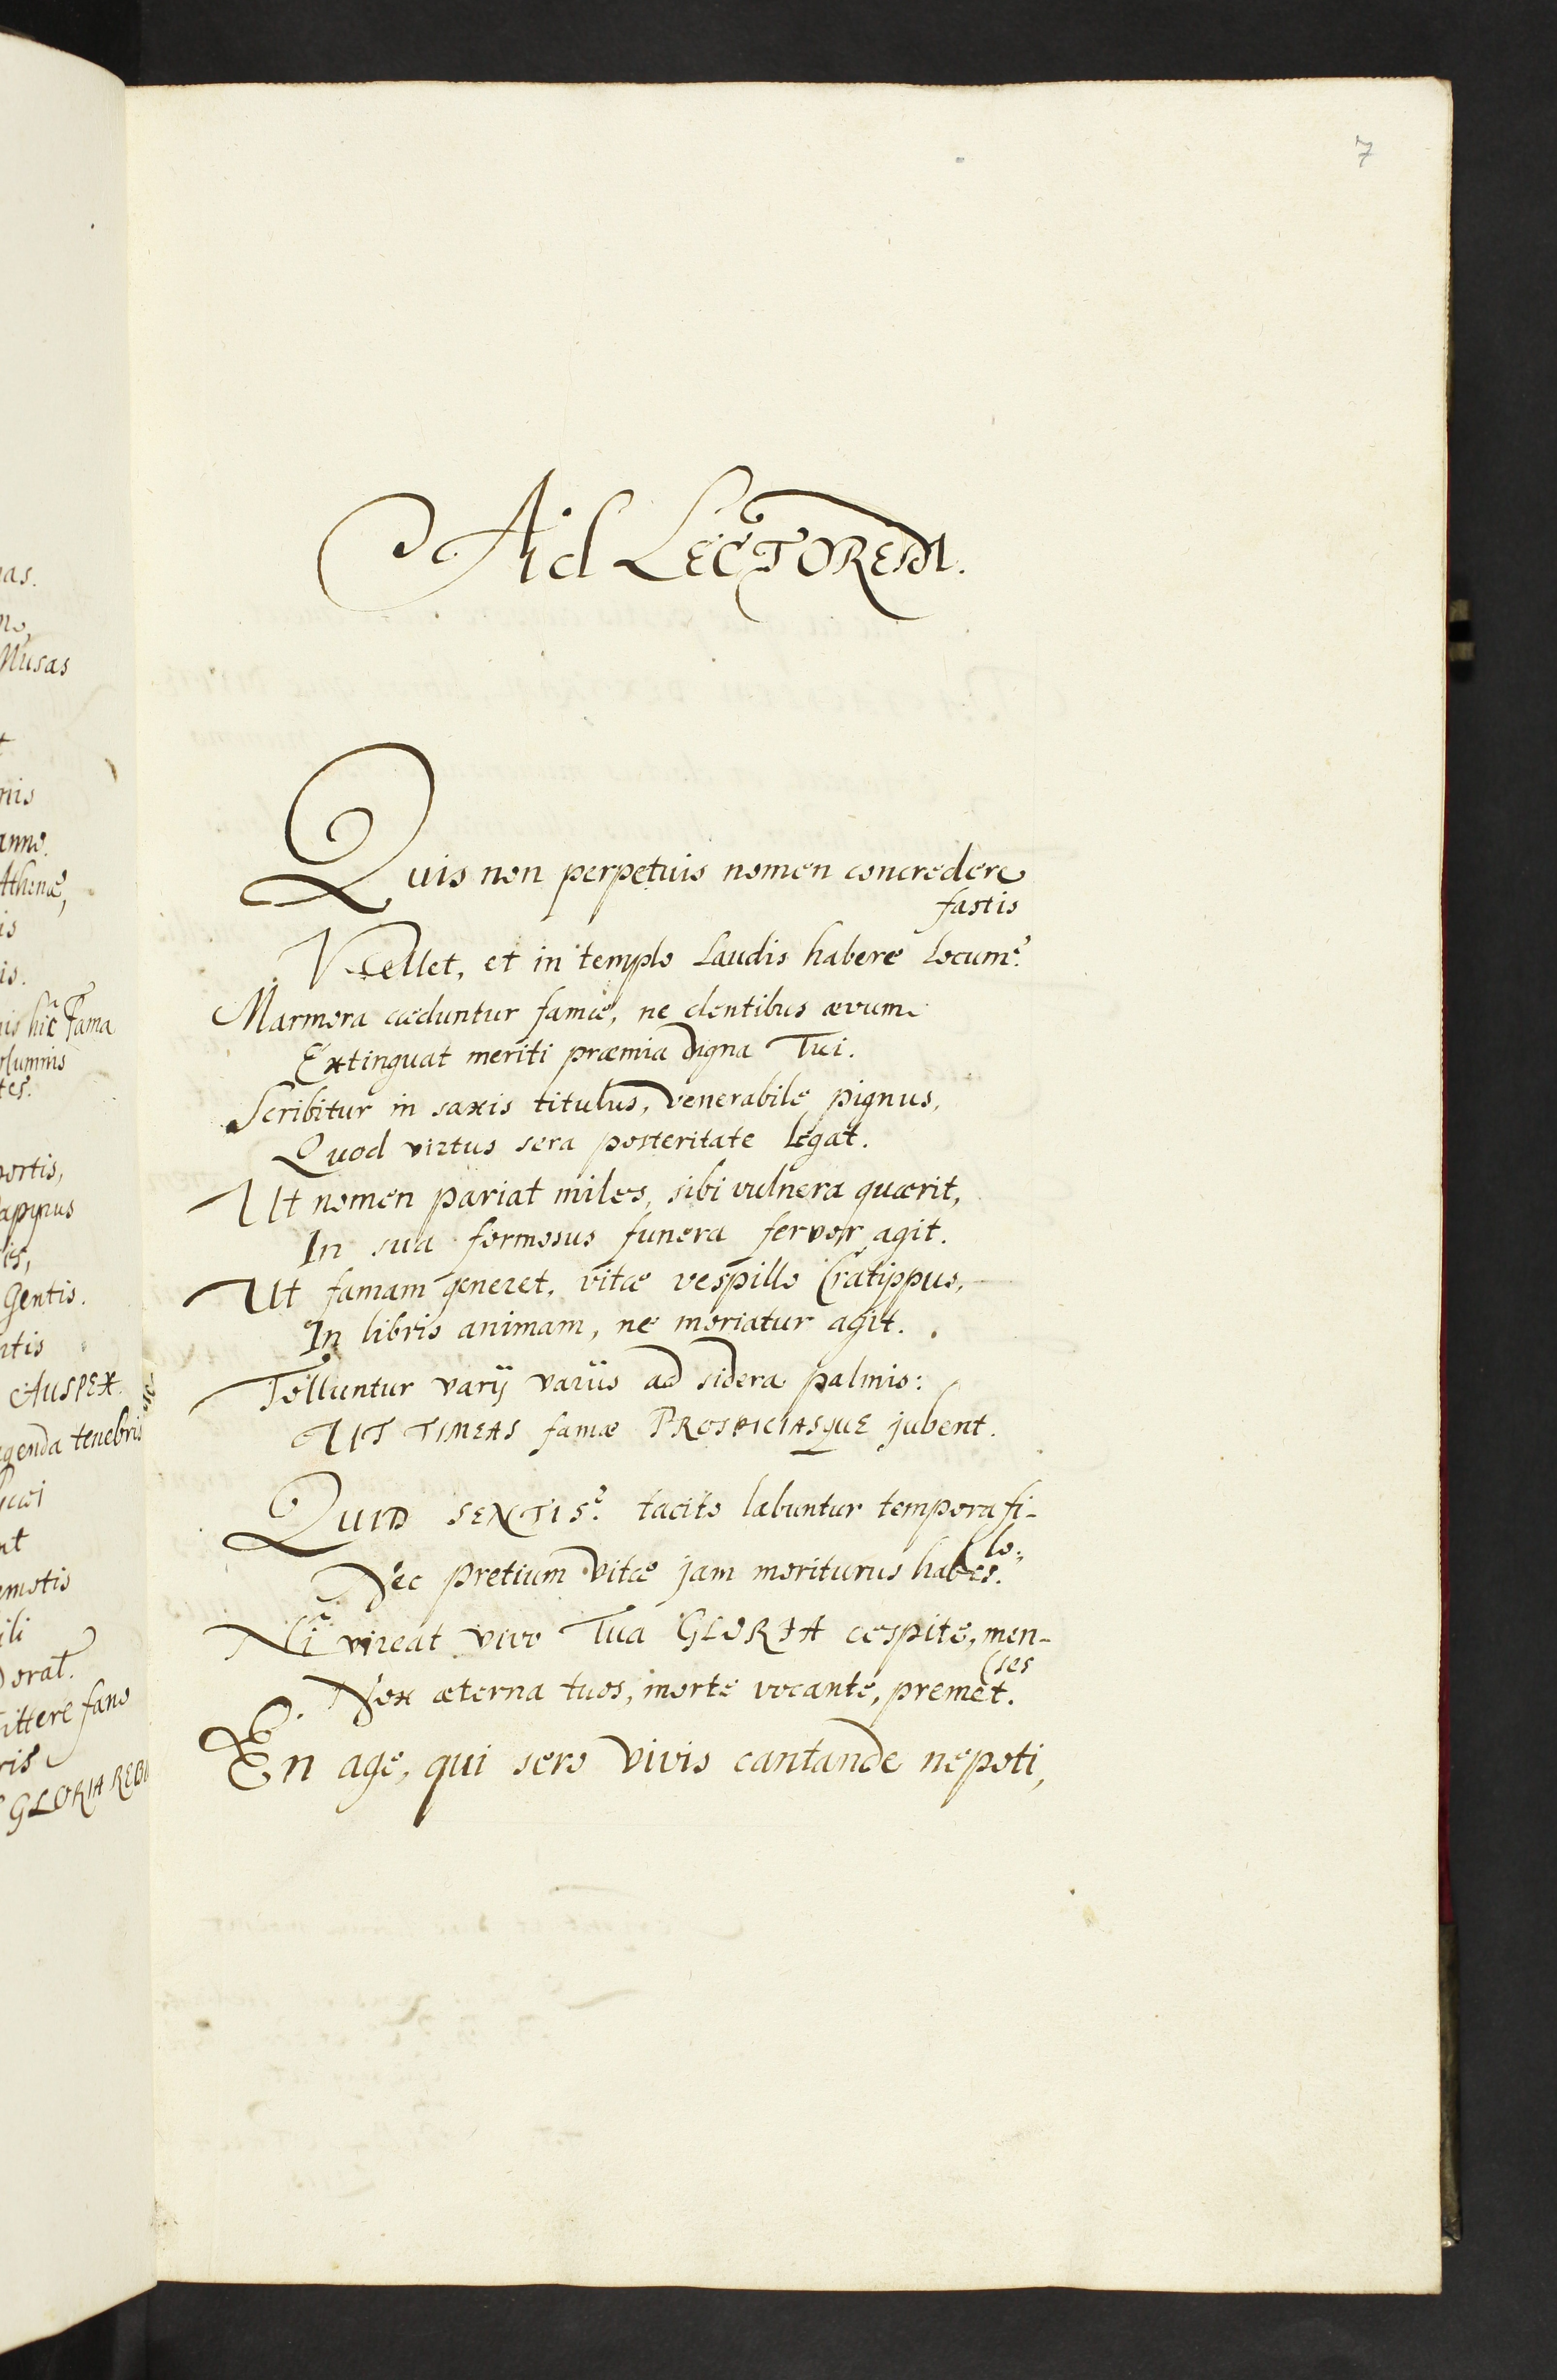 as.
no,
Musas
t
niis
anno.
Athenæ,
is
is.
is hîc Fama
olumnis
tes.
ortis,
apyrus
es,
Gentis.
ntis
AUSPEX.
genda tenebris
nt
motis
ili
orat.
ittere fano
ris
GLORIA
7
Ad LECTOREM.
Quis non perpetuis nomen concredere
fastis
Vellet, et in templo Laudis habere locum?
Marmora cæduntur famæ, ne dentibus ævum
Extinguat meriti præmia digna Tui.
Scribitur in saxis titulus, venerabile pignus,
Quod virtus sera posteritate legat.
Ut nomen pariat miles, sibi vulnera quærit,
In sua formosus funera fervor agit.
Ut famam generet, vitæ vespillo Cratippus,
In libris animam, ne moriatur agit.
Tolluntur varij variis ad sidera palmis:
UT TIMEAS famæ PROSPICIASQUE jubent.
QUID SENTIS? tacito labuntur tempora fi-
lo;
Nec pretium vitæ jam moriturus habes.
Ni vireat vivo Tua GLORIA cespite, men-
(ses
Nox æterna tuos, morte vocante, premet.
En age, qui sero vivis cantande nepoti,